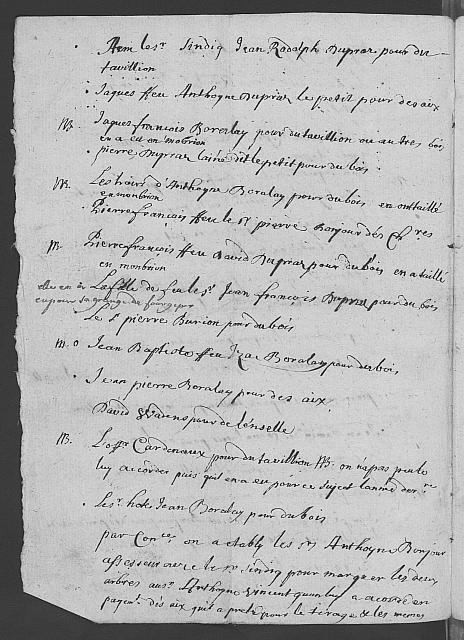 Item les.r Sindiq Jean Rodolph Dupraz pour du
tavillion
Jaques ffeu Anthoyne Dupraz le petit pour des aix
NB. Jaques françois Boralay pour du tavillion ou autres bois
en a eu en monbrion
pierre Dupraz laine dit le petit pour du bois
NB. Les hoirs d'Anthoyne Boralay pour du bois en ont taillé
en monbrion
Pierre françois ffeu le Sr pierre Bonjour des
NB. Pierre françois ffeu David Dupraz pour du bois en a taillé
en monbrion
elle en a La fille de feu le Sr Jean francois Dupraz pour du bois
eu pour sa grange de
Le Sr pierre Burion pour du bois
NB. o Jean Baptiste ffeu Isac Boralay pour du bois
Jean pierre Boralay pour des aix
David pour de lenselle
NB. Cardenaux pour du tavillion NB. on n'a pas peu le
luy accorder puis quil en a eu pour ce sujet lannée
Le Sr. hote Jean Boralay pour du bois
par on a etably les Srs Anthoyne Bonjour
assesseur avec le Sr Sindiq pour marquer les deux
arbres aus. Anthoyne vincent quon luy a acordé en
payemt. des aix quil a presté pour le tirage et les mesmes